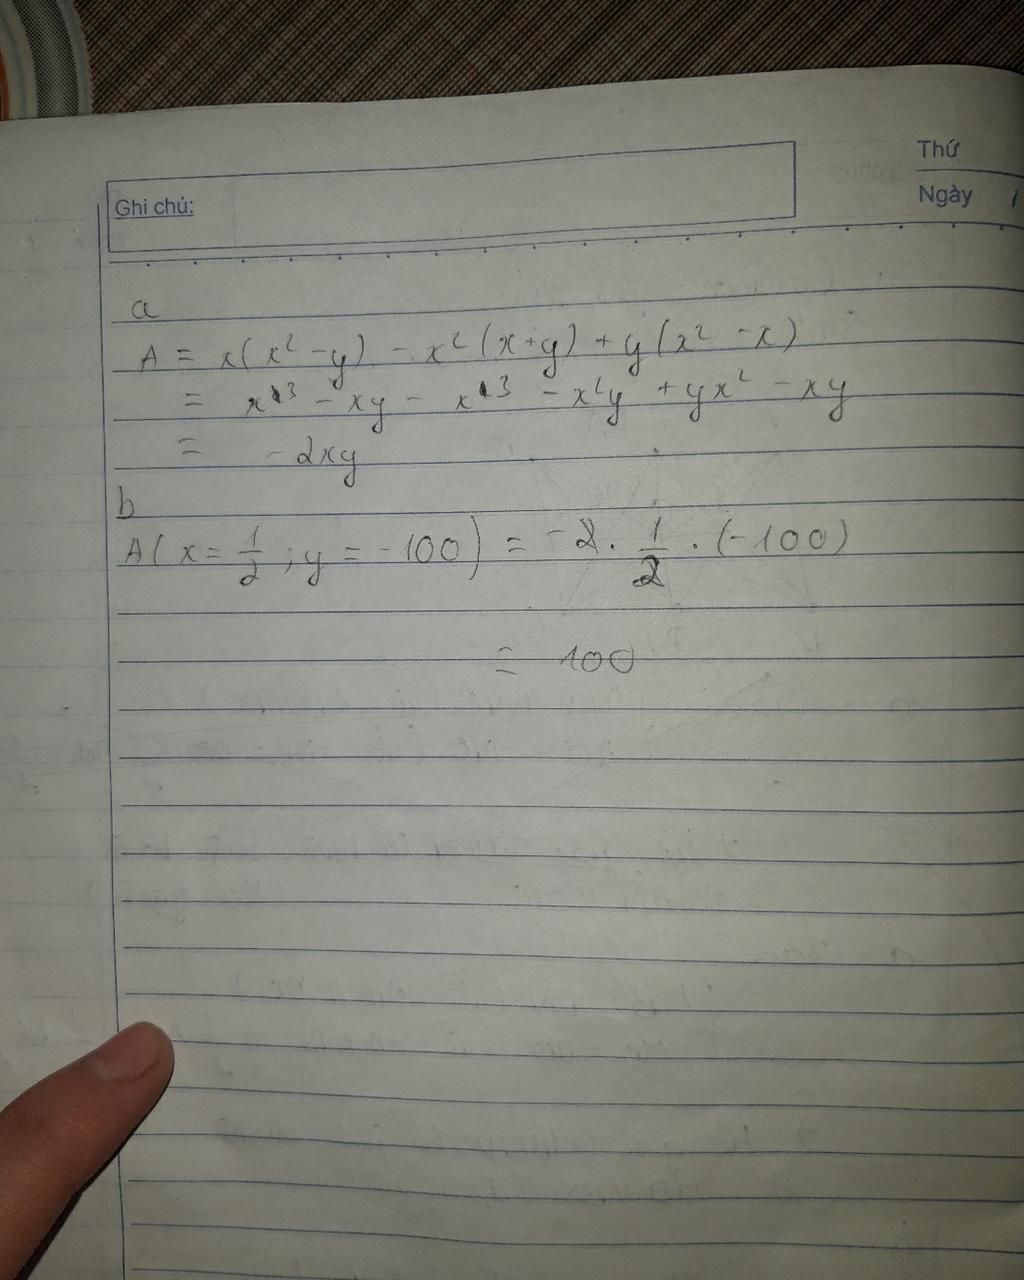 Thứ
Ghi chú:
Ngày /
a
A = x(x² - y) - x²(x + y) + y(x² - x)
= x³ - xy - x³ - x²y + yx² - xy
= - 2xy
b
A( x = 1/2 ; y = -100) = -2 . 1/2 . (-100)
= 100